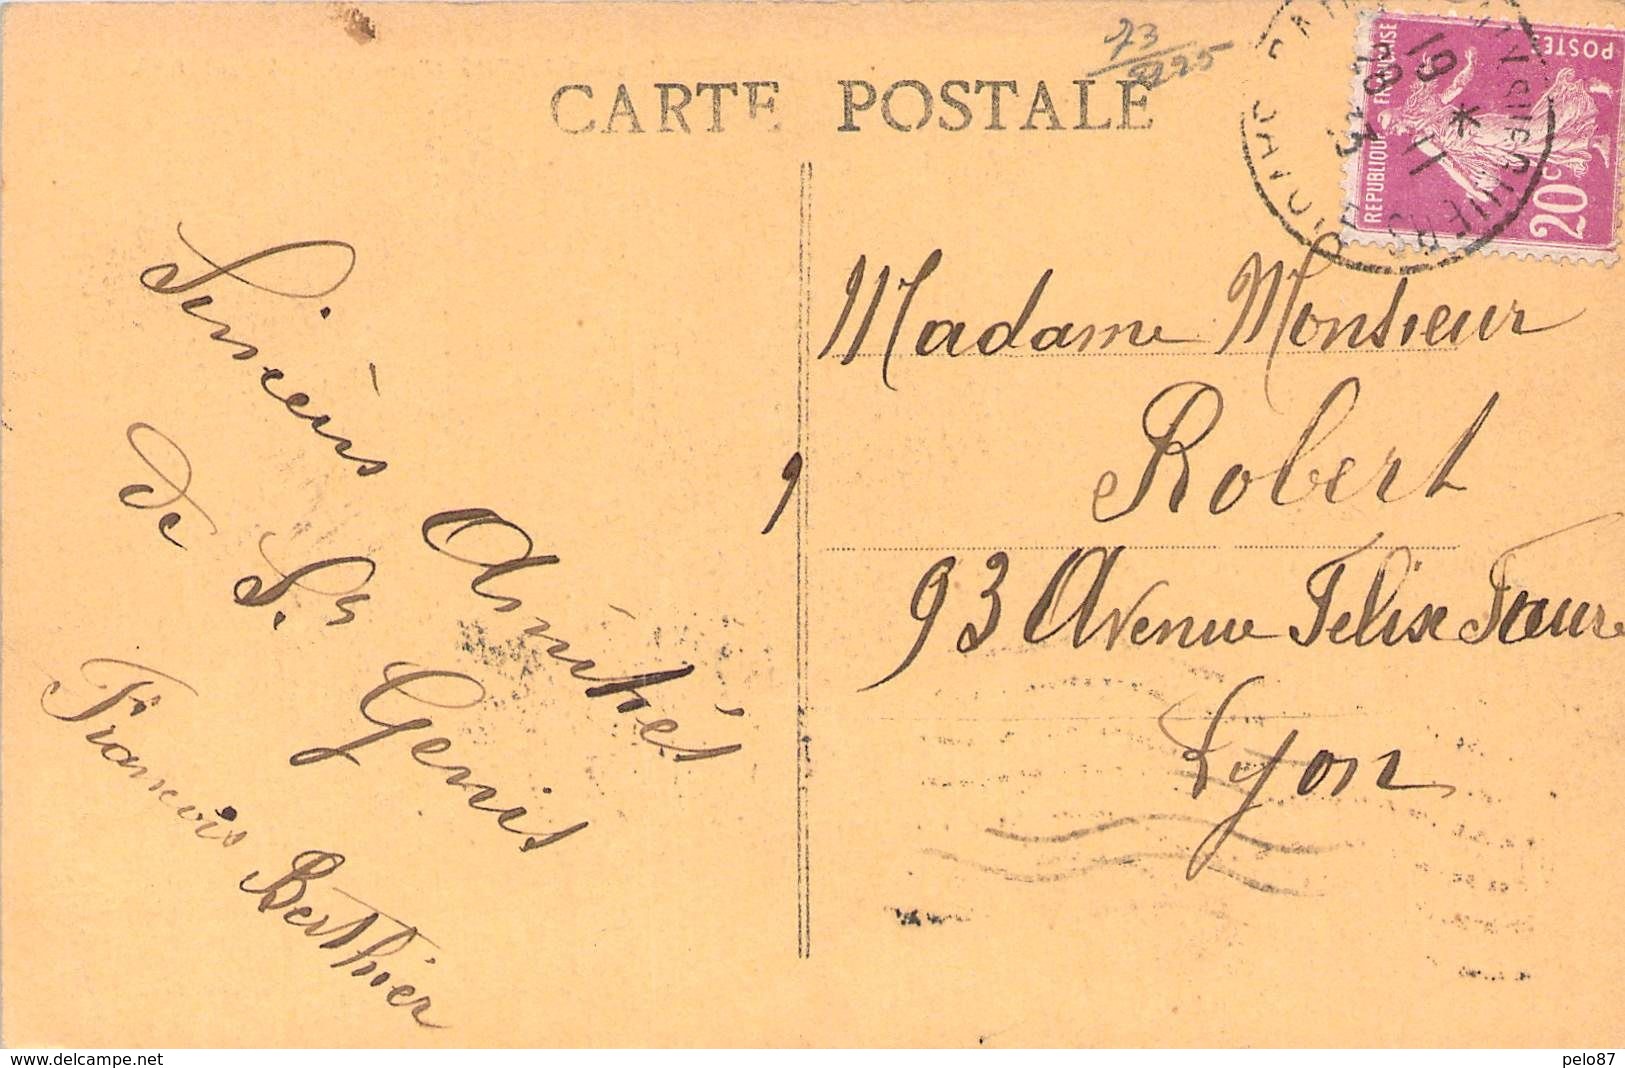 CARTE POSTALE
REPUBLIQUE FRANÇAISE
POSTES
20c
19
*
11
Sinsères Amitiés
de St Genis
François Berthier
Madame Monsieur
Robert
93 Avenue Felix Faure
Lyon
www.delcampe.net
pelo87